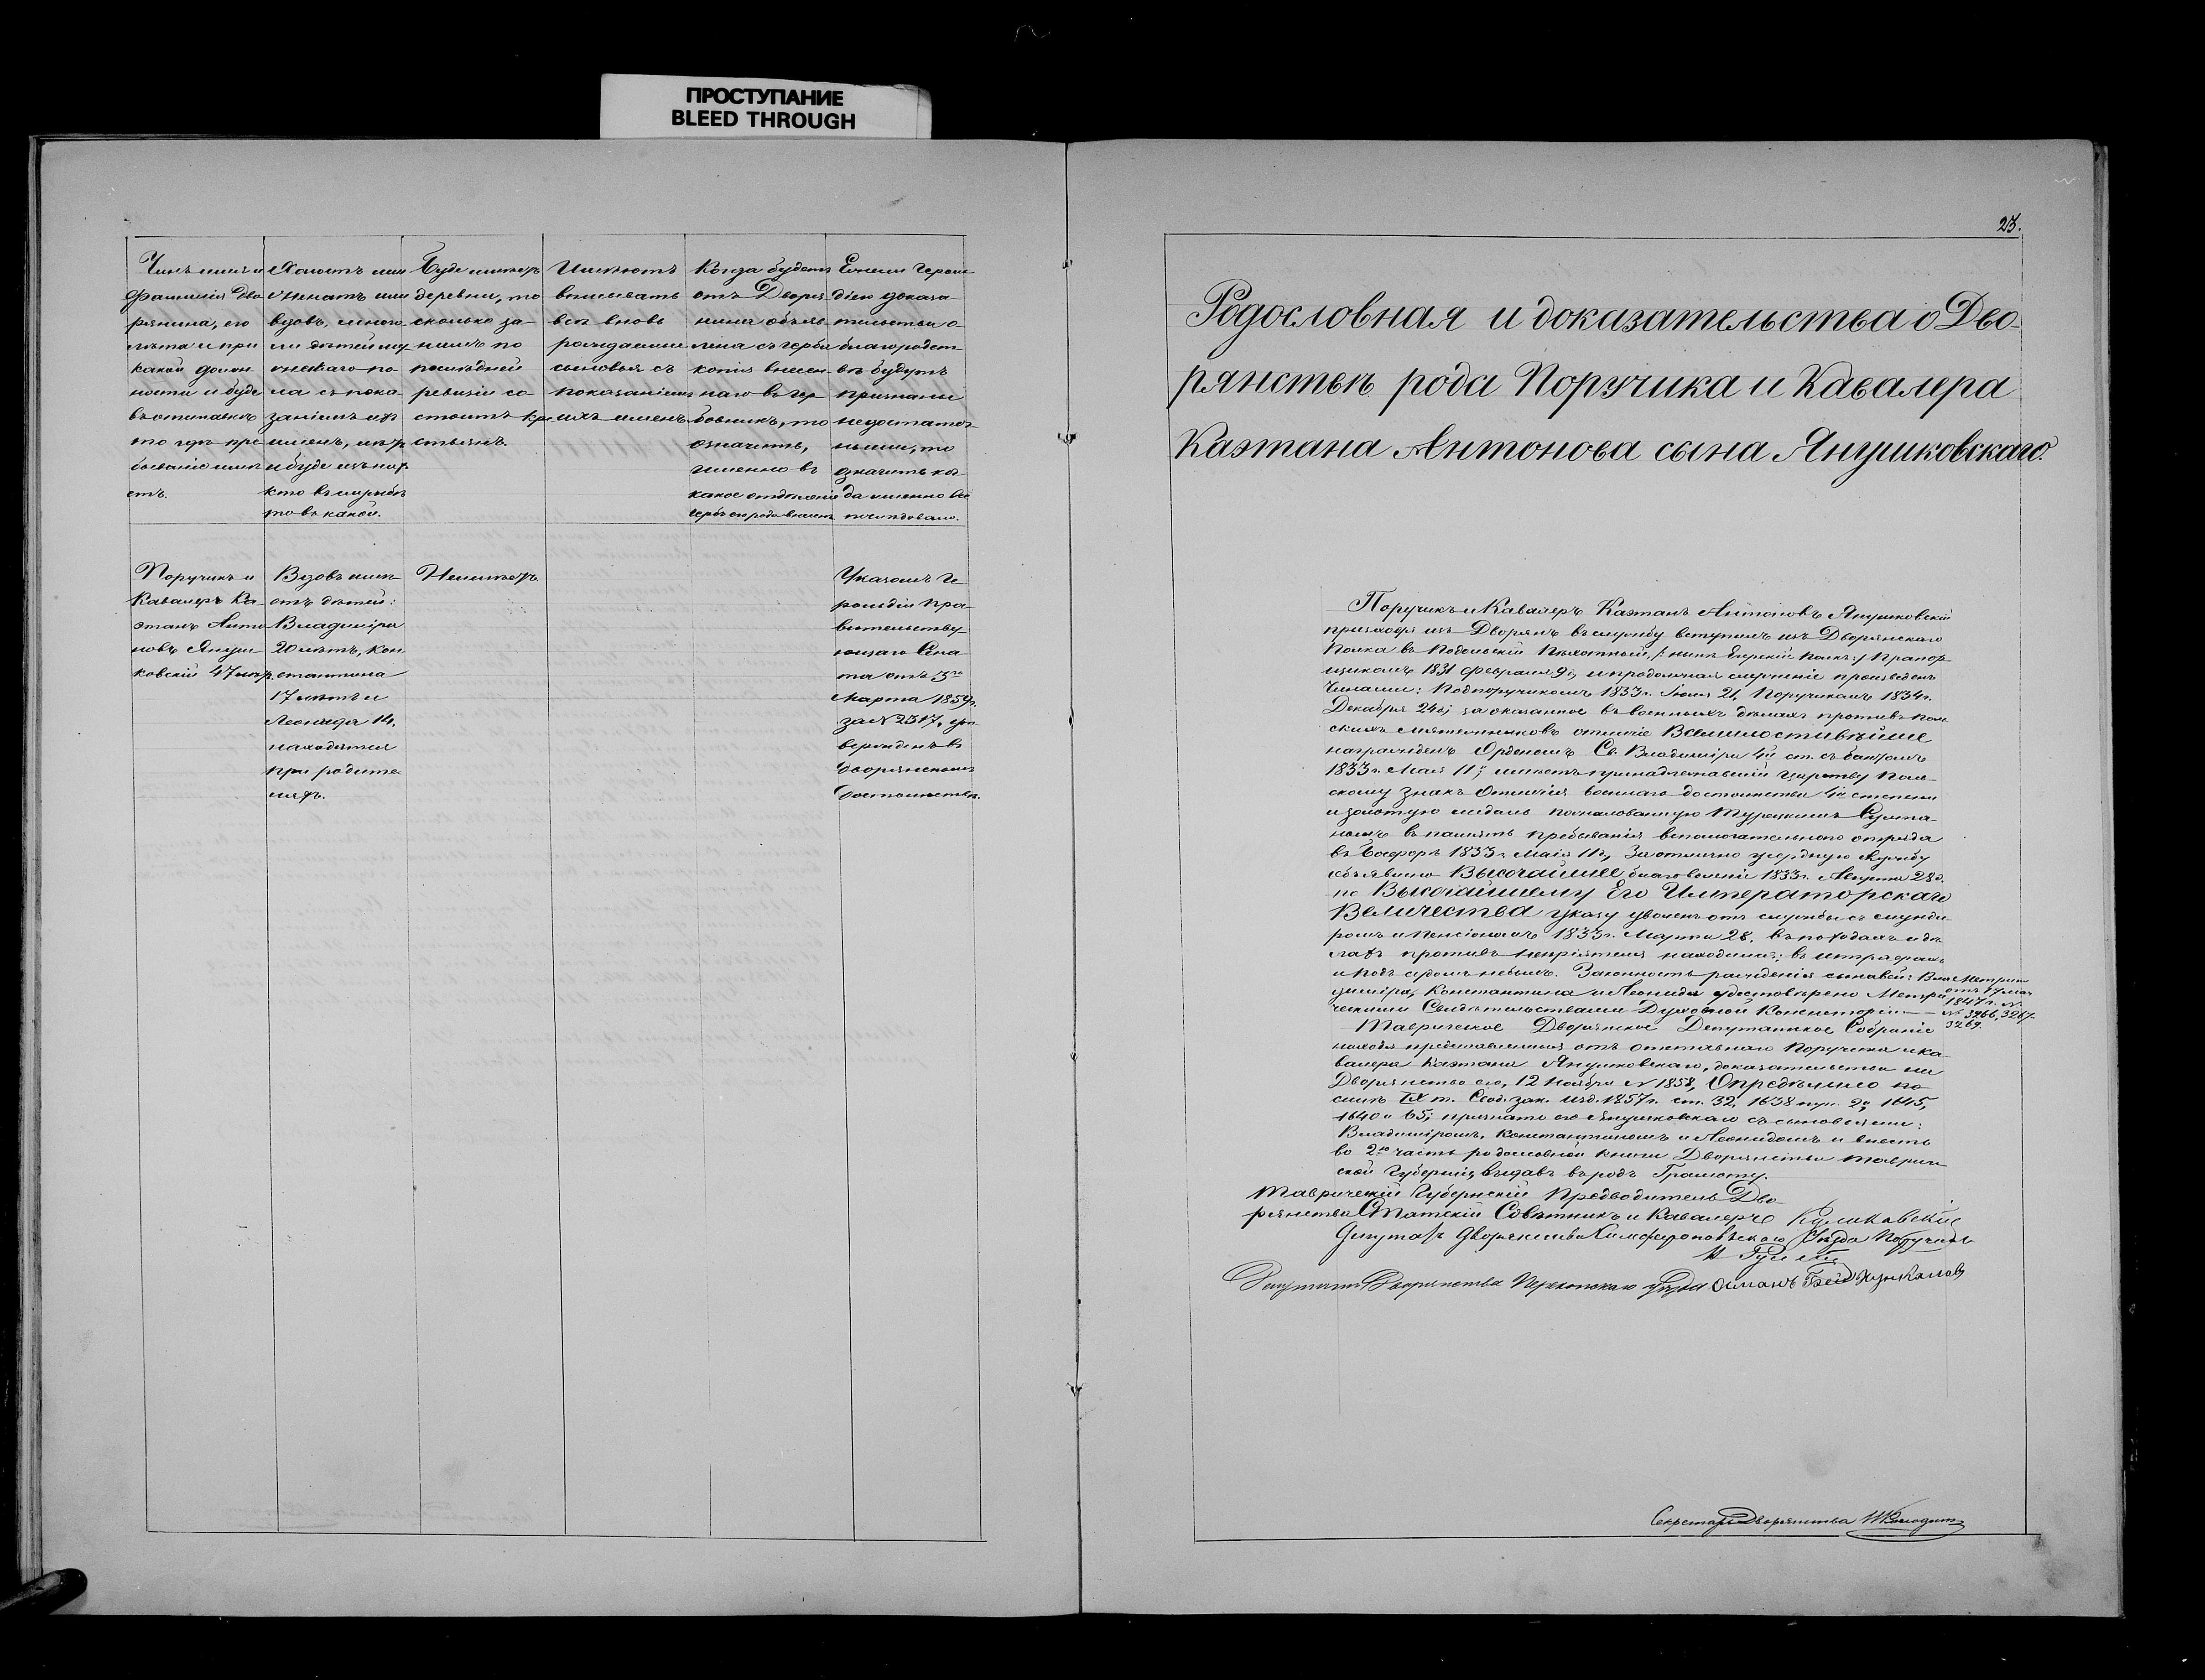 ПРОСТУПАНИЕ
BLEED THROUGH
Чинъ имя и
фамилія Дво
рянина, его
лѣта и при
какой долж
ности и буде
въ отставкѣ
то гдѣ пре
бываніе имѣ
етъ.
Холостъ или
женатъ или
вдовъ, много
ли дѣтей му
жескаго по
ла съ пока
заніемъ ихъ
именъ, лѣтъ
и буде изъ нихъ
кто въ службѣ
то въ какой.
Буде имѣетъ
деревни, то
сколько за
нимъ по
послѣдней
ревизіи со
стоитъ кре
стьянъ.
Имѣютъ
вписывать
всѣ вновь
рождаемые
сыновья съ
показаніемъ
ихъ именъ.
Когда будетъ
отъ Дворя
нина объяв
лена съ герба
копія внесен
наго въ гер
бовникъ, то
означить,
именно въ
какое отдѣленіе
гербъ его рода внесенъ
Ежели Героль
діею доказа
тельства о
благородст
вѣ будутъ
признаны
недостаточ
ными, то
значить ког
да именно сіе
послѣдовало.
Поручикъ и
Кавалеръ Ка
этанъ Анто
новъ Януш
ковскій 47 лѣтъ.
Вдовъ имѣ
етъ дѣтей:
Владиміра
20 лѣтъ, Кон
стантина
17 лѣтъ и
Леонида 14,
находятся
при родите
ляхъ.
Неимѣетъ.
Указомъ Ге
рольдіи Пра
вительству
ющаго Сена
та отъ 5го
Марта 1859г.
за № 2317, ут
вержденъ въ
дворянскомъ
достоинствѣ.
23.
Родословная и доказательства о Дво-
рянствѣ рода Поручика и Кавалера
Каэтана Антонова сына Янушковскаго.
Поручикъ и Кавалеръ Каэтанъ Антоновъ Янушковскій
происходя изъ Дворянъ въ службу вступилъ изъ Дворянскаго
Полка въ Подольскій Пѣхотный, /: нынѣ Егерскій полкъ :/ Прапор-
щикомъ 1831 Февраля 9; и продолжая служеніе произведенъ
Чинами: Подпоручикомъ 1833г. Іюня 21, Поручикомъ 1834г.
Декабря 24го; за оказанное въ военныхъ дѣлахъ противъ поль
скихъ мятежниковъ отличіе Всемилостивѣйше
награжденъ Орденомъ Св. Владиміра 4й ст. съ бантомъ
1833г. Мая 11; имѣетъ принадлежавшій Царству Поль-
скому знакъ отличія военнаго достоинства 4й степени
и золотую медаль пожалованную Турецкимъ Султа-
номъ въ память пребыванія вспомогательнаго отряда
въ Босфорѣ 1833г. Маія 11го, За отлично усердную службу
объявлено Высочайшее благоволеніе 1833г. Августа 28го.
по Высочайшему Его Императорскаго
Величества указу уволенъ отъ службы съ мунди-
ромъ и пенсіономъ 183 г. Марта 28. въ походахъ и дѣ
лахъ противъ непріятеля находился; въ штрафахъ
и подъ судомъ небылъ. Законность рожденія сыновей: Вла
диміра, Константина и Леонида удостовѣрено Метри
ческими Свидѣтельствами Духовной Консисторіи
Метрики
отъ 17 мая
1847г. №
№ 3266, 3267.
3269.
Таврическое Дворянское Депутатское Собраніе
находя представленныя отъ отставнаго Поручика и ка-
валера Каэтана Янушковскаго, доказательства на
Дворянство его, 12 Ноября 1858, Опредѣлило по
силѣ IX т. Свод. зак. изд. 1857г. ст. 32, 1638 пун. 2й, 1645,
1640 и 65; признать его Янушковскаго съ сыновьями:
Владиміромъ, Константиномъ и Леонидомъ и внесть
во 2ю часть родословной книги Дворянства Тавриче
ской Губерніи, выдавъ въ родъ Грамоту.
Таврическій Губернскій Предводитель Дво-
рянства Статскій Совѣтникъ и Кавалеръ
Депутатъ Дворянства Симферопольскаго Уѣзда Поручикъ
Депутатъ Дворянства Перекопскаго уѣзда Османъ Бей
Секретарь Дворянства